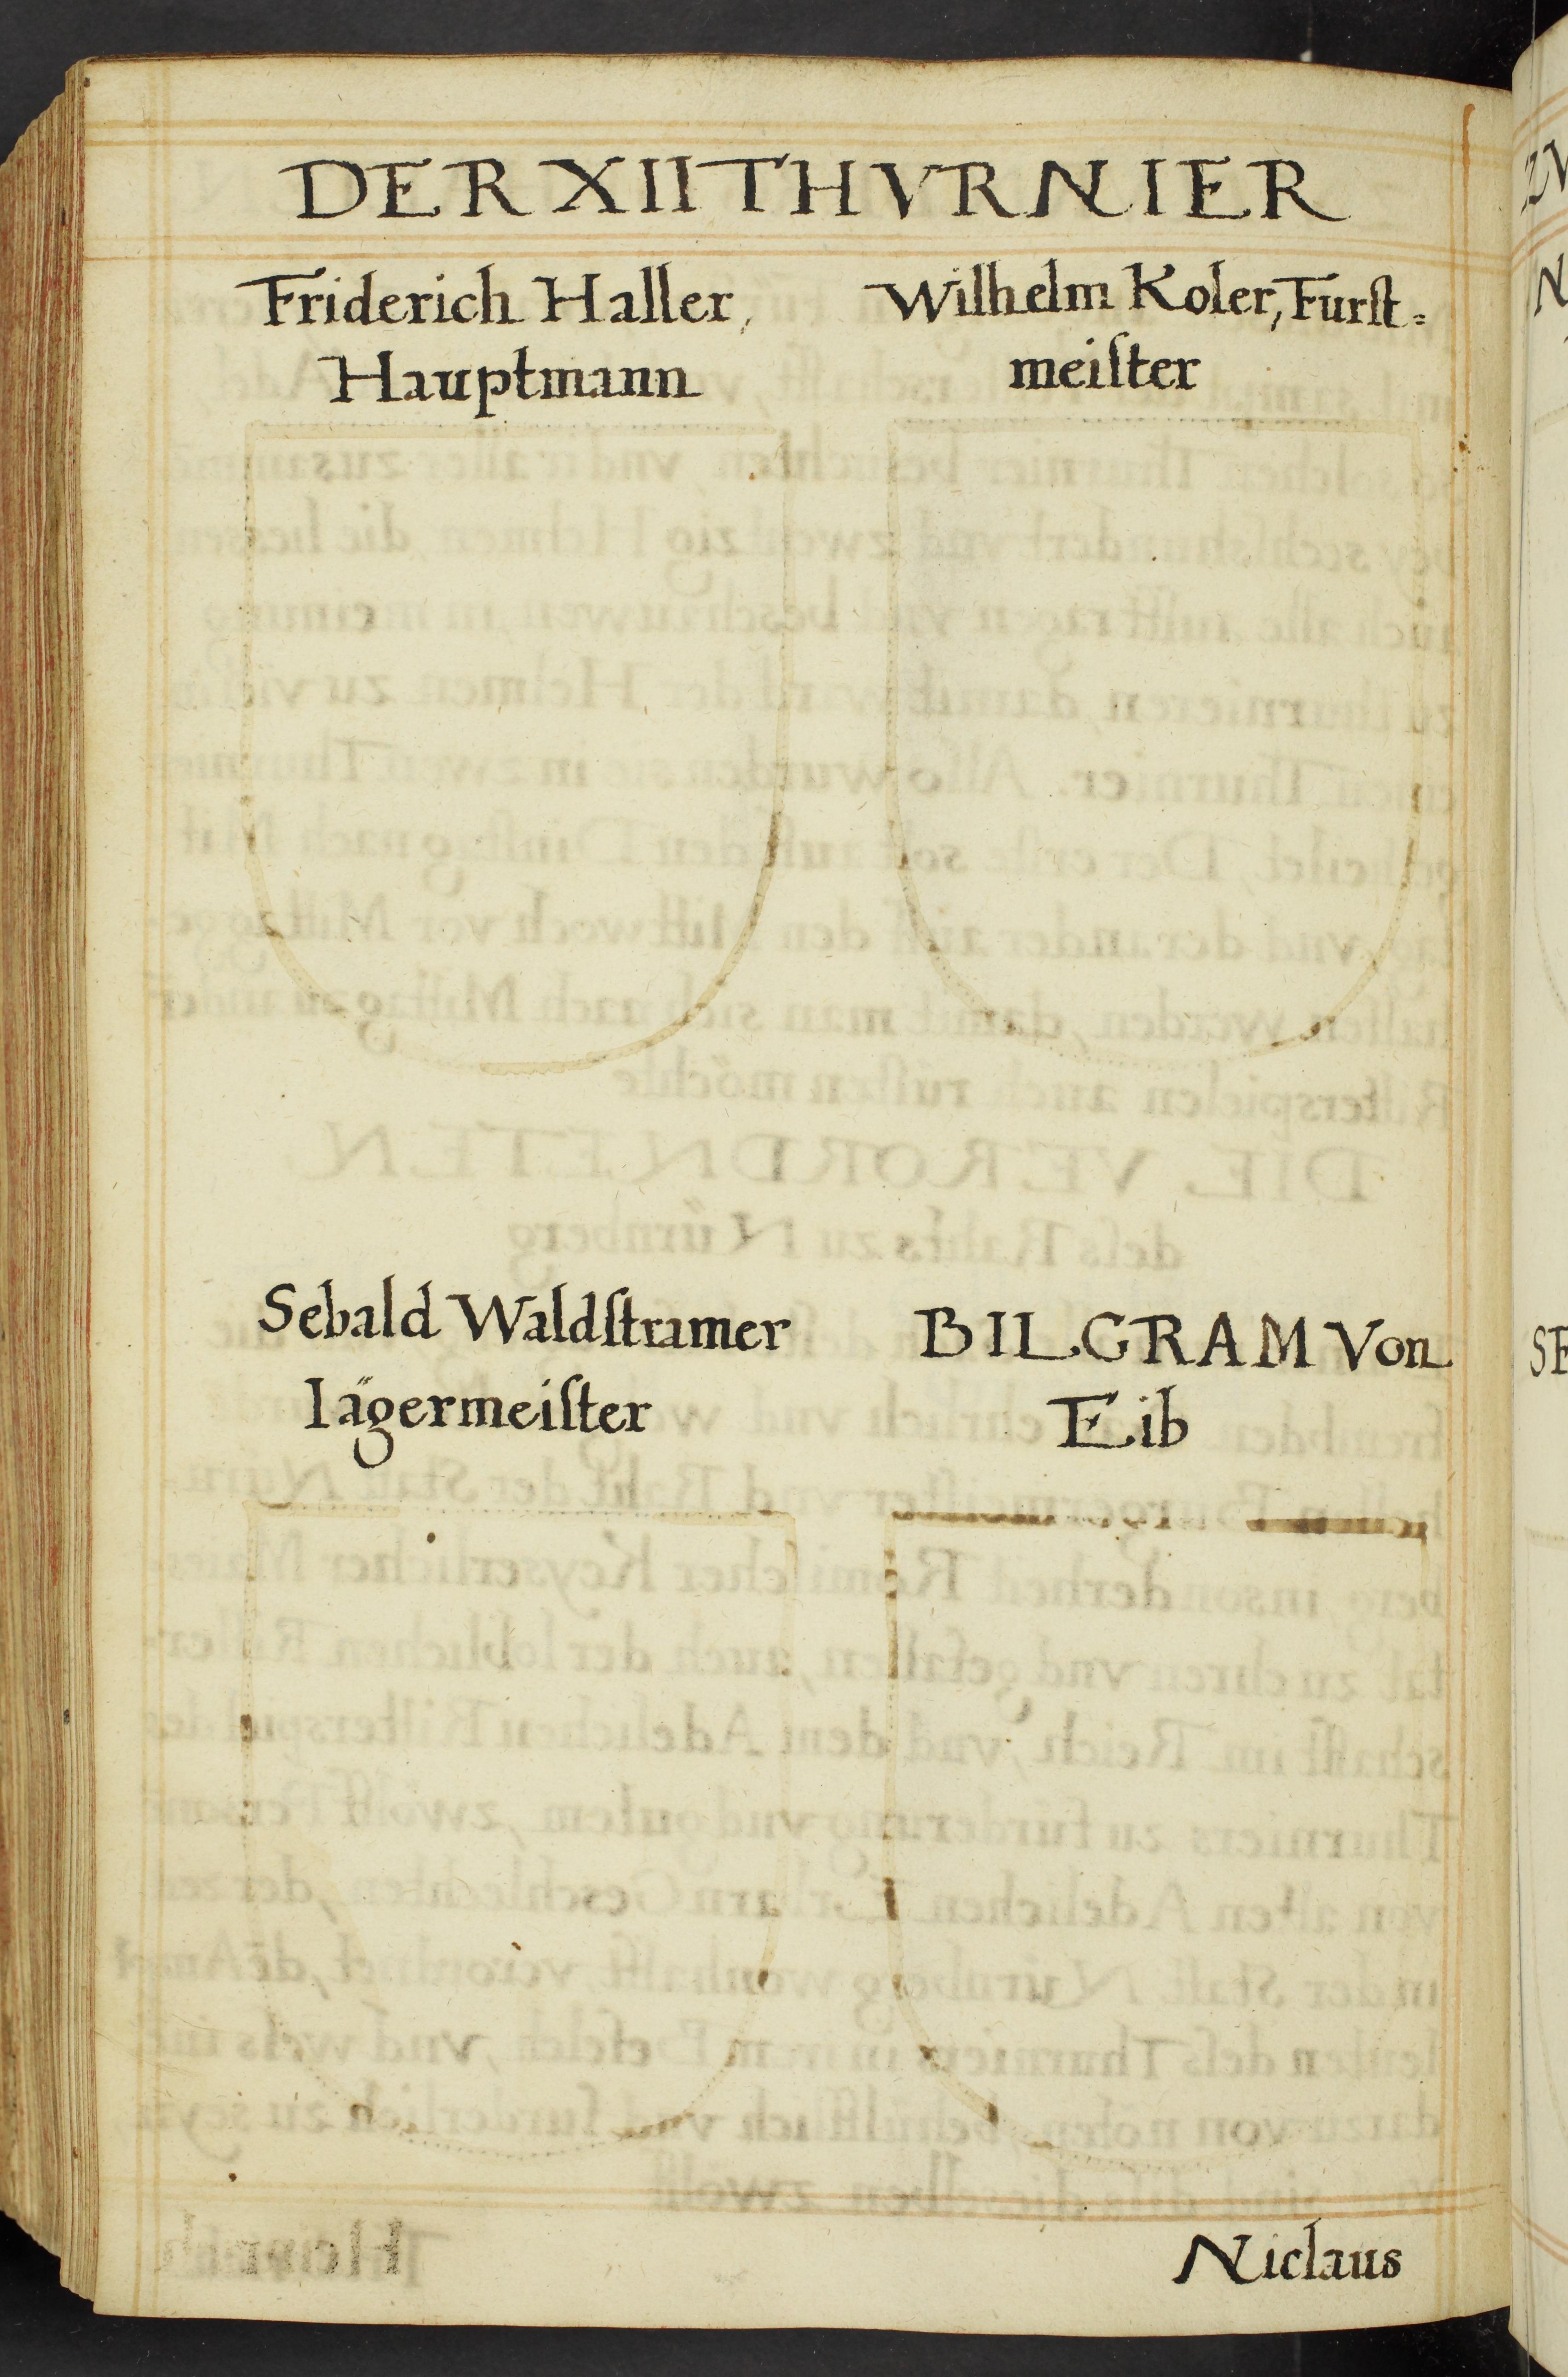 DER XII THVRNIER
Friderich Haller,
Hauptmann
Wilhelm Koler, Furſt⸗
meiſter
Sebald Waldſtramer
Iägermeiſter
BILGRAM Von
Eib
Niclaus